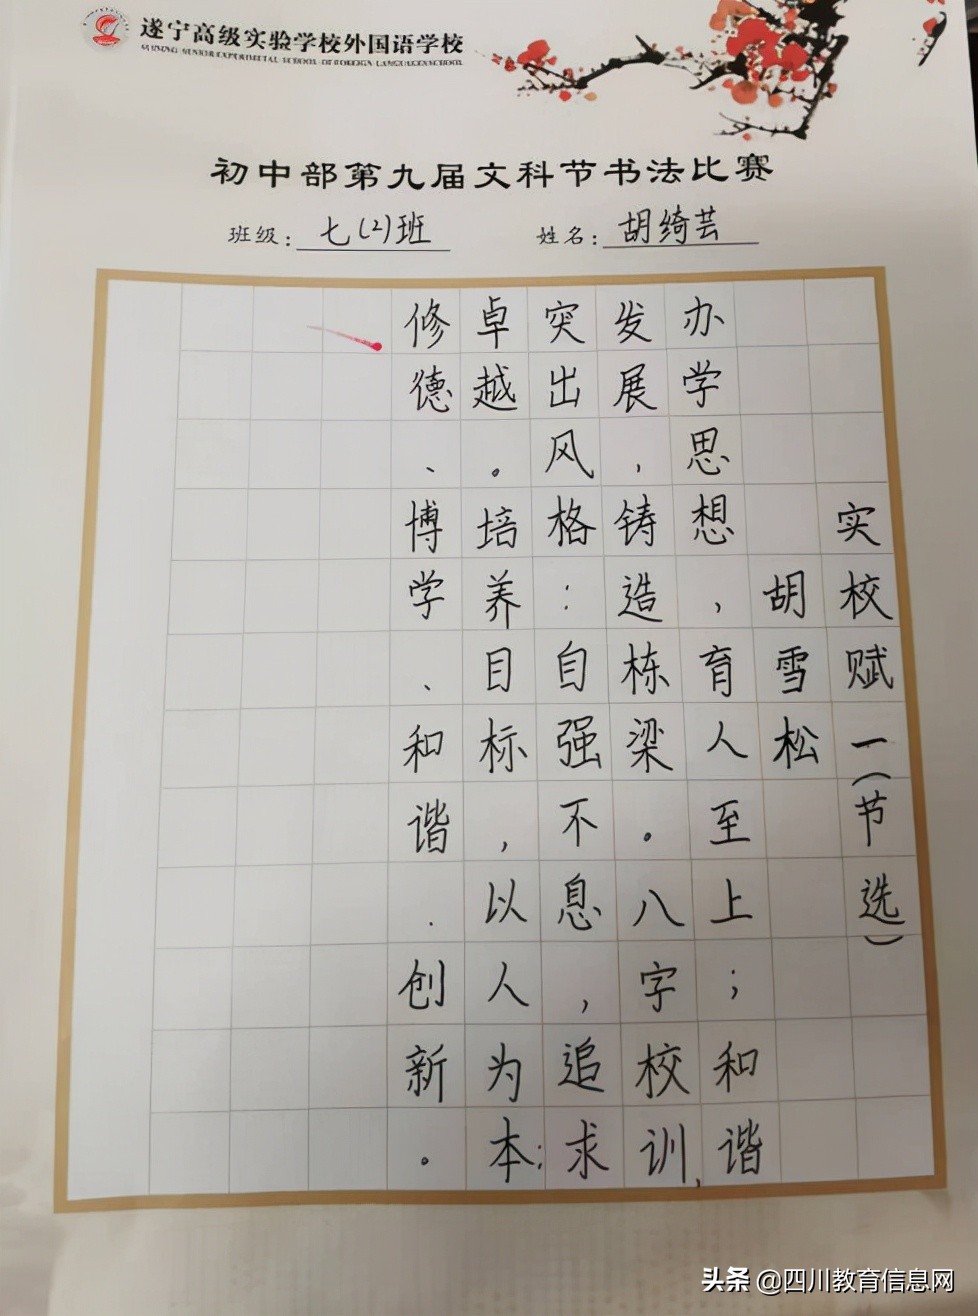 遂宁高级实验学校外国语学校
SUINING SENIOR EXPERIMETAL SCHOOL OF FOREIGN LANGUAGES SCHOOL
初中部第九届文科节书法比赛
班级：七(2)班 姓名：胡绮芸
实校赋一（节选）
胡雪松
办学思想，育人至上；和谐
发展，铸造栋梁。八字校训，
突出风格：自强不息，追求
卓越。培养目标，以人为本；
修德、博学、和谐、创新。
头条 @四川教育信息网